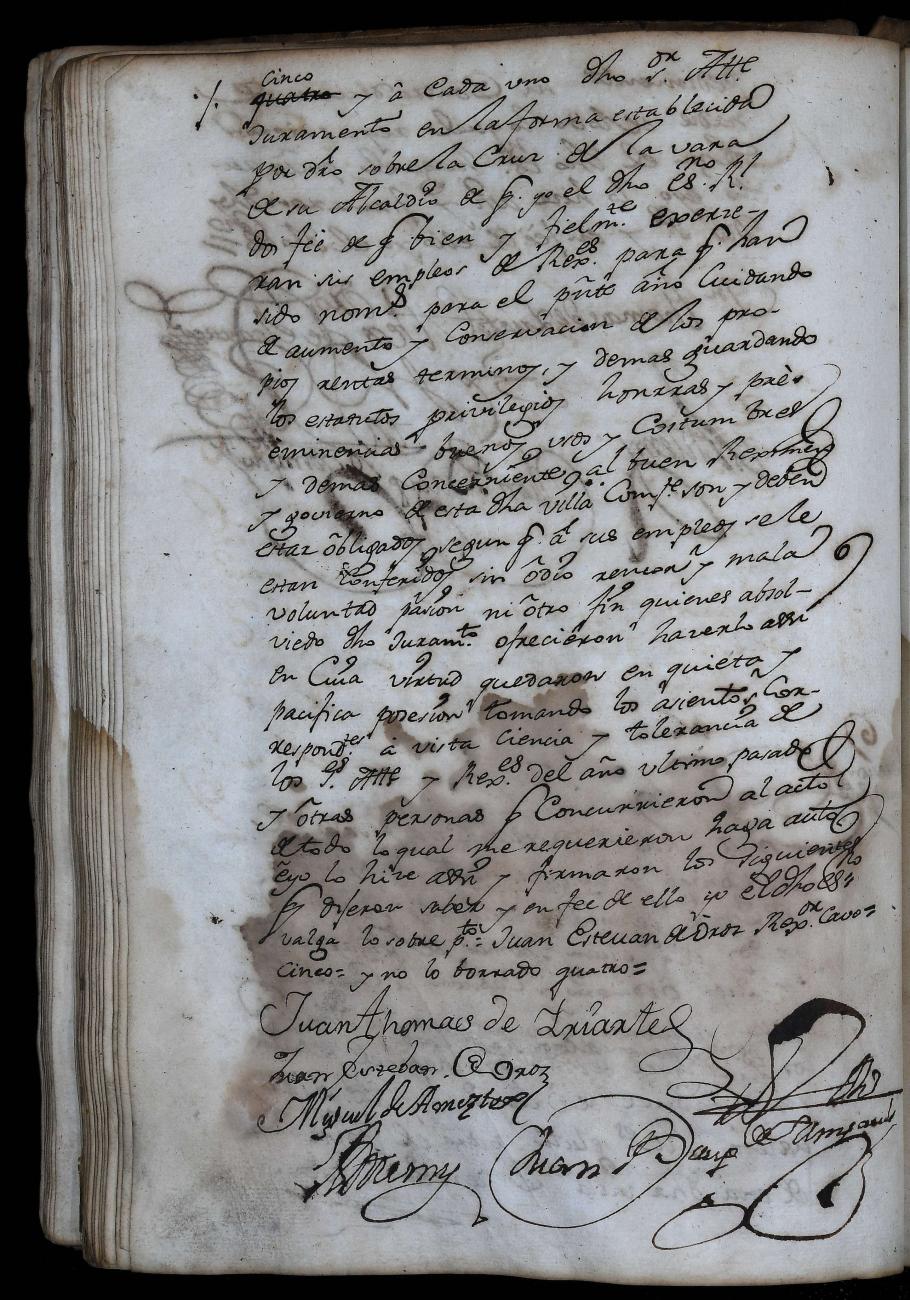 cinco
quatro y â Cada vno dho sor Alle
Juramento en la forma establecida
por dro sobre la Cruz de la vara
de su Alcaldio de q. yo el dho es.no Rl.
doi feé de q bien y fielm.te exerze-
ran sus empleos de Rex.es para q. han
sido nom.s para el pnte año Cuidando
el aumento y Conservacion de los pro-
pios rentas terminos, y demas guardando
los estatutos privilegios honrras y prè-
eminencias buenos vsos y Costumbres
y demas Concerniente al buen Reximen
y govierno de esta dha villa Comfe son y deben
estar ôbligados segun q. âl sus empleos se le
estan Conferidos sin ôdio rencor y mala
voluntad pasion ni ôtro fin quienes absol-
viedo dho Juram.to ofrecieron haverlo assi
en Cuia virtud quedaron en quieta y
pacifica posesion tomando los asientos Cor-
respond.tes â vista Ciencia y tolerancia de
los S.es Alle y Rex.es del año vltimo pasado
y ôtras personas q Concurrieron al acto
de todo lo qual me requerieron haga auto
è yo lo hize assi y firmaron los siguientes
q dijeron saber y en fee de ello yo el dho es.no
valga lo sobre p.to= Juan Estevan de Oroz Rex.or Cavo=
Cinco= y no lo borrado quatro=
Juan Thomas de Yriarte
Juan Esteban de Oroz
Miguel de Amezteoy
Juan Baup